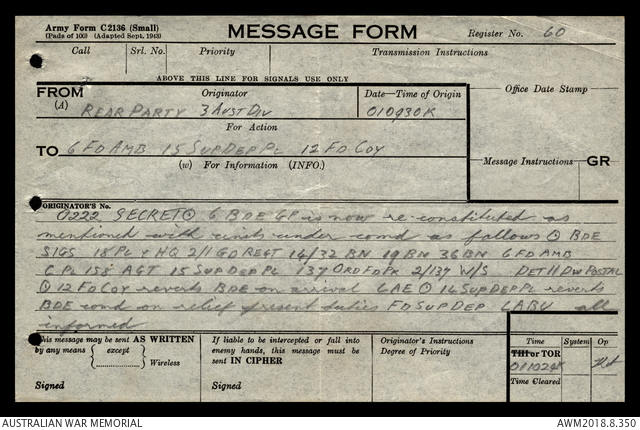 Army Form C2136 (Small)
(Pads of 100) (Adapted Sept, 1943)
MESSAGE FORM
Register No. 60
Call Srl. No. Priority Transmission Instructions
ABOVE THIS LINE FOR SIGNALS USE ONLY
FROM Originator Date—Time of Origin Office Date Stamp
(A) REAR PARTY 3 AUST DIV 010930K
For Action
TO 6 FD AMB 15 SUP DEP PL 12 FD COY
(w) For Information (INFO.) Message Instructions GR
ORIGINATOR'S No.
O222 SECRET 6 BDE GP is now re-constituted as
mentioned with units under comd as follows BDE
SIGS 18 PL HQ 2/1 GD REGT 14/32 BN 19 BN 36 BN 6 FD AMB
C PL 158 AGT 15 SUP DEP PL 137 ORD FD PK 2/137 W/S DET 11 DIV POSTAL
12 FD COY reverts BDE on arrival CAE 14 SUP DEP PL reverts
BDE comd on relief present duties FD SUP DEP LABU all
informed
This message may be sent AS WRITTEN
by any means (except) Wireless
Signed
If liable to be intercepted or fall into
enemy hands, this message must be
sent IN CIPHER
Signed
Originator's Instructions
Degree of Priority
Time System Op
THI or TOR
011024K
Time Cleared
AUSTRALIAN WAR MEMORIAL AWM2018.8.350